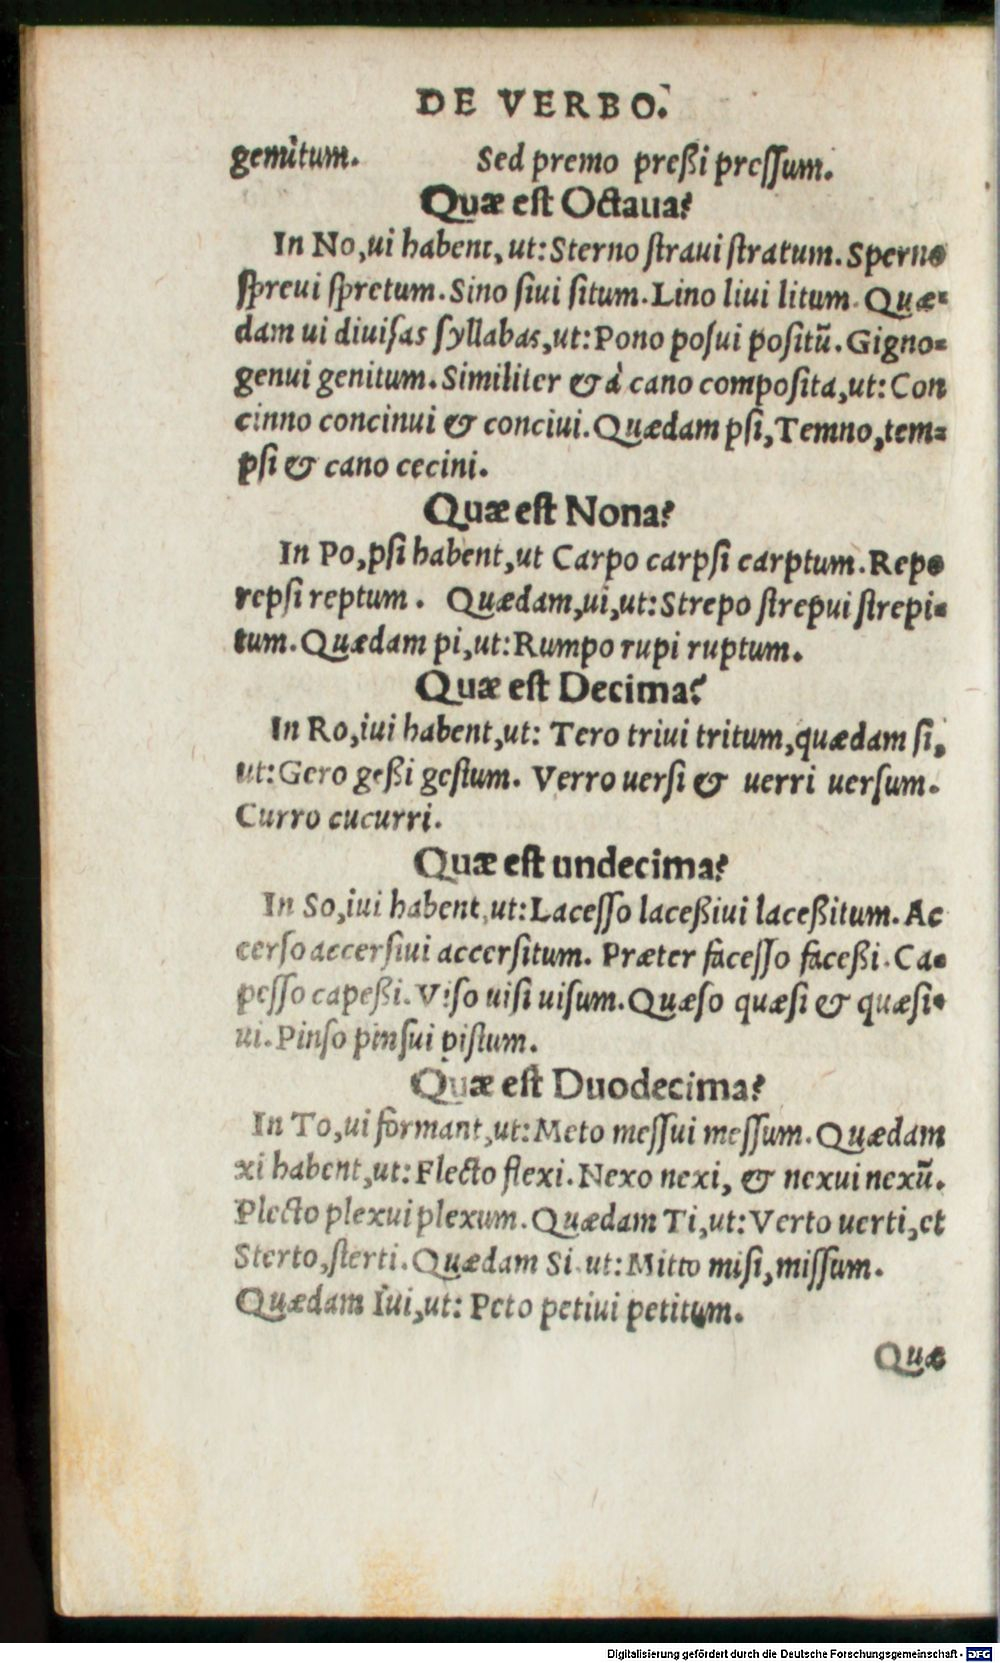 DE VERBO.
gemitum. Sed premo preßi pressum.
Quæ est Octaua?
In No,ui habent, ut: Sterno straui stratum. Sperno
spreui spretum. Sino siui situm. Lino liui litum. Quæ-
dam ui diuisas syllabas,ut: Pono posui positū. Gigno-
genui genitum. Similiter & à cano composita,ut: Con
cinno concinui & conciui. Quædam psi, Temno,tem-
psi & cano cecini.
Quæ est Nona?
In Po,psi habent,ut Carpo carpsi carptum. Repo
repsi reptum. Quædam,ui,ut: Strepo strepui strepi-
tum. Quædam pi,ut: Rumpo rupi ruptum.
Quæ est Decima?
In Ro,iui habent,ut: Tero triui tritum,quædam si,
ut: Gero geßi gestum. Verro uersi & uerri uersum.
Curro cucurri.
Quæ est undecima?
In So,iui habent,ut: Lacesso laceßiui laceßitum. Ac
cerso accersiui accersitum. Præter facesso faceßi. Ca-
pesso capeßi. Viso uisi uisum. Quæso quæsi & quæsi-
ui. Pinso pinsui pistum.
Quæ est Duodecima?
In To,ui formant,ut: Meto messui messum. Quædam
xi habent,ut: Flecto flexi. Nexo nexi, & nexui nexū.
Plecto plexui plexum. Quædam Ti,ut: Verto uerti,et
Sterto,sterti. Quædam Si ut: Mitto misi,missum.
Quædam Iui,ut: Peto petiui petitum.
Quæ
Digitalisierung gefördert durch die Deutsche Forschungsgemeinschaft - DFG